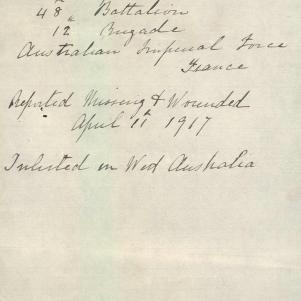 48th Battalion
12 Brigade
Australian Imperial Force
France
Reported Missing & Wounded
April 11th 1917
Inlisted in West Australia